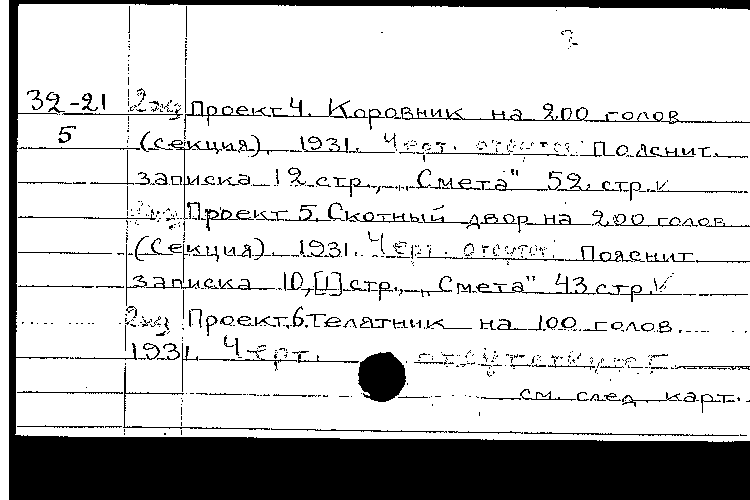 2
32-21 2 экз Проект 4. Коровник на 200 голов
5 (секция). 1931. Черт. отсутст. Пояснит.
записка 12 стр., „Смета" 52. стр. v
2 экз Проект 5. Скотный двор на 200 голов
(Секция). 1931. Черт. отсутст. Пояснит.
записка 10,[1] стр., „Смета" 43 стр. v
2 экз Проект.6. Телятник на 100 голов.
1931. Черт. отсутствуют
см. след. карт.